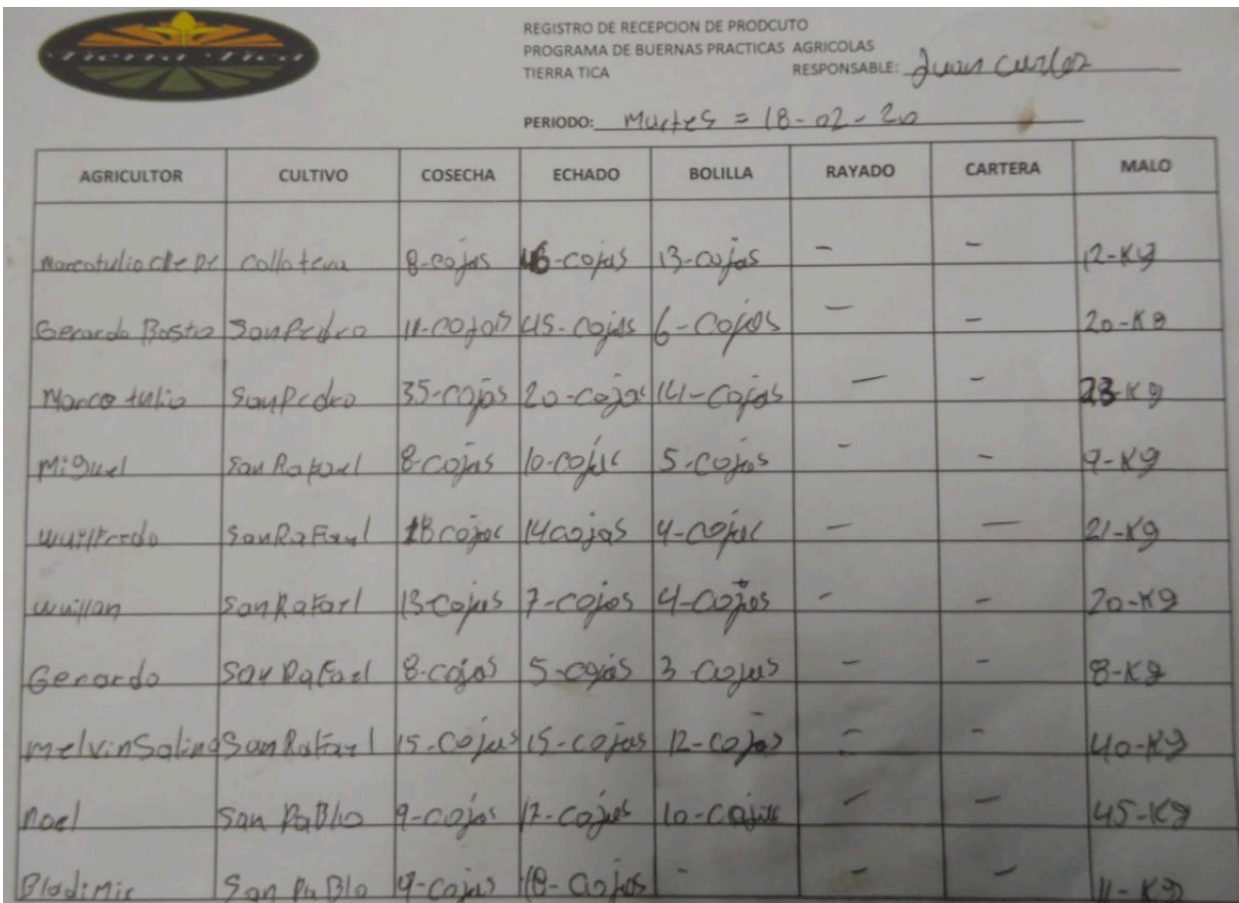 Tierra Tica
REGISTRO DE RECEPCION DE PRODCUTO
PROGRAMA DE BUERNAS PRACTICAS AGRICOLAS
TIERRA TICA RESPONSABLE: Juan Carlos
PERIODO: Martes = 18-02-20
AGRICULTOR CULTIVO COSECHA ECHADO BOLILLA RAYADO CARTERA MALO
Marcotulio 8-cajas 46-cajas 13-cajas - - 12-Kg
Gerardo San Pedro 11-cajas 45-cajas 6-cajas - - 20-Kg
Marco tulio San Pedro 35-cajas 20-cajas 14-cajas - - 23-Kg
Miguel San Rafael 8-cajas 10-cajas 5-cajas - - 9-Kg
Wuilfredo San Rafael 18 cajas 14 cajas 4-cajas - - 21-Kg
Wuillan San Rafael 13-cajas 7-cajas 4-cajas - - 20-Kg
Gerardo San Rafael 8-cajas 5-cajas 3 cajas - - 8-Kg
Melvin Salina San Rafael 15-cajas 15-cajas 12-cajas - - 40-Kg
Noel San PaBlo 9-cajas cajas 10-cajas - - 45-Kg
Bladimir San PaBlo cajas 18-cajas - - - 11-Kg